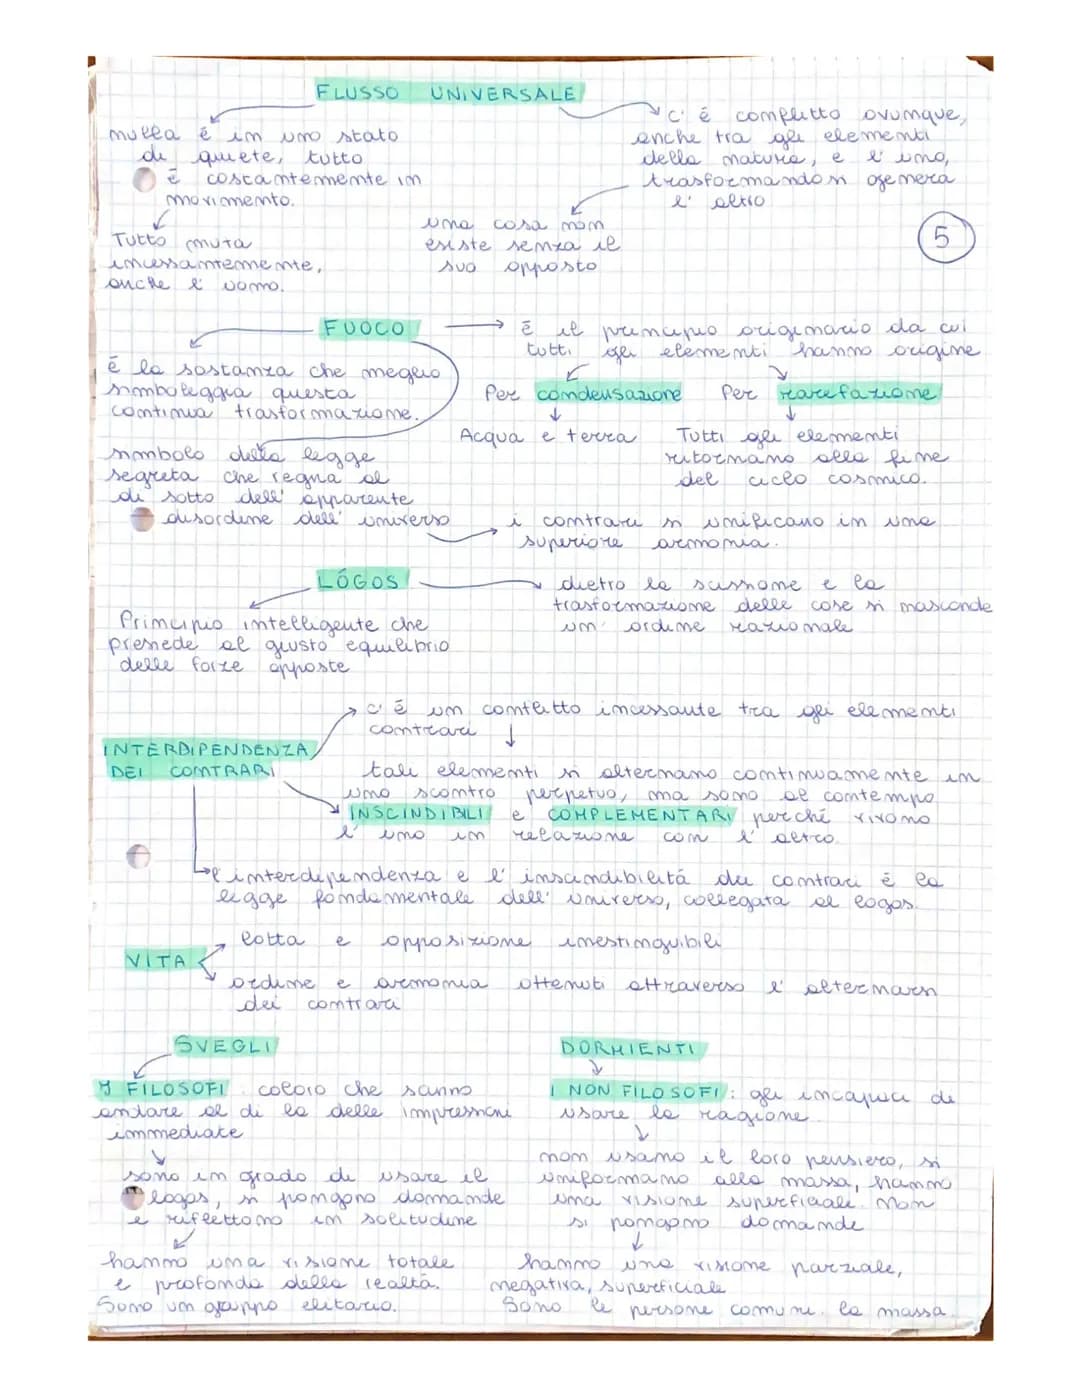 FLUSSO UNIVERSALE
nulla é in uno stato
di quiete, tutto
é costantemente in
movimento.
Tutto muta
incessantemente,
anche l'uomo.
c'é conflitto ovunque,
anche tra gli elementi
della natura, e l'uno,
trasformandosi genera
l'altro
una cosa non
esiste senza il
suo opposto
5
FUOCO
é la sostanza che meglio
simboleggia questa
continua trasformazione.
simbolo della legge
segreta che regna al
di sotto dell'apparente
disordine dell'universo
é il principio originario da cui
tutti gli elementi hanno origine
Per condensazione
Acqua e terra
Per rarefazione
Tutti gli elementi
ritornano alla fine
del ciclo cosmico.
i contrari si unificano in una
superiore armonia.
LÓGOS
Principio intelligente che
presiede al giusto equilibrio
delle forze opposte
dietro la scissione e la
trasformazione delle cose si nasconde
un'ordine razionale
INTERDIPENDENZA
DEI CONTRARI
c'é un conflitto incessante tra gli elementi
contrari
tali elementi si alternano continuamente in
uno scontro perpetuo, ma sono al contempo
INSCINDIBILI e COMPLEMENTARI perché vivono
l'uno in relazione con l'altro
l'interdipendenza e l'inscindibilitá dei contrari é la
legge fondamentale dell'universo, collegata al logos.
VITA
lotta e opposizione inestinguibili
ordine e armonia ottenuti attraverso l'alternarsi
dei contrari
SVEGLI
I FILOSOFI: coloro che sanno
andare al di la delle impressioni
immediate
sono in grado di usare il
logos, si pongono domande
e riflettono in solitudine
hanno una visione totale
e profonda della realtá.
Sono un gruppo elitario.
DORMIENTI
I NON FILOSOFI: gli incapaci di
usare la ragione
non usano il loro pensiero, si
uniformano alla massa, hanno
una visione superficiale. Non
si pongono domande
hanno una visione parziale,
negativa, superficiale
Sono le persone comuni. la massa.